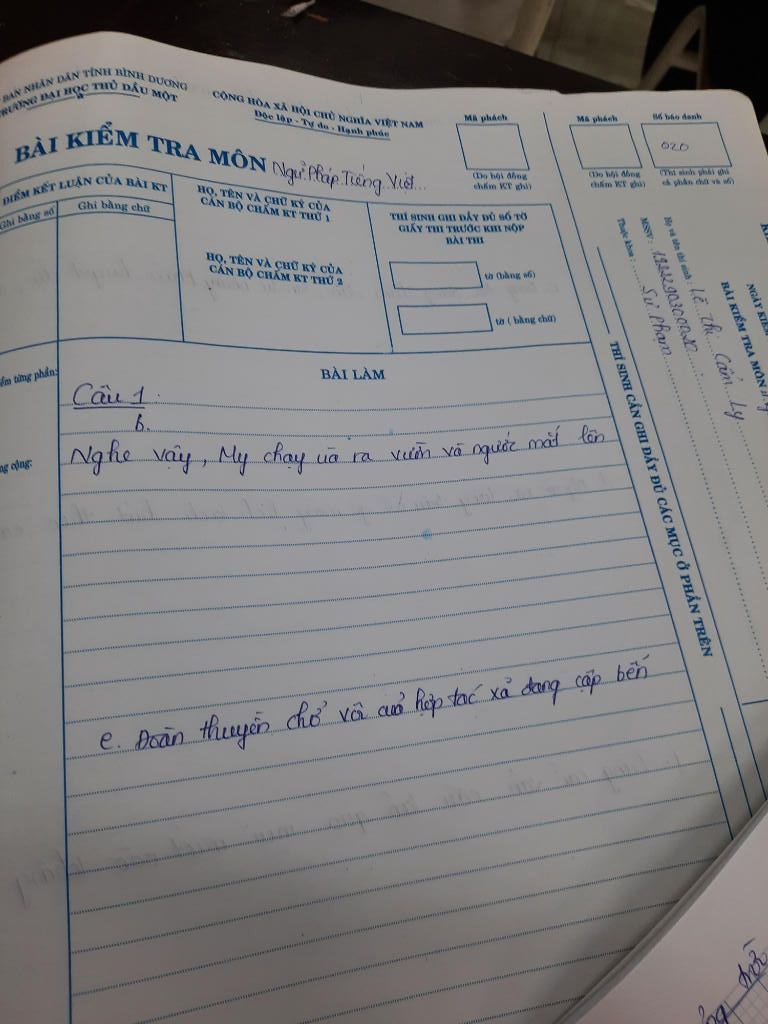 BAN NHÂN DÂN TỈNH BÌNH DƯƠNG
TRƯỜNG ĐẠI HỌC THỦ DẦU MỘT
CỘNG HÒA XÃ HỘI CHỦ NGHĨA VIỆT NAM
Độc lập - Tự do - Hạnh phúc
BÀI KIỂM TRA MÔN Ngữ Pháp Tiếng Việt
Mã phách
(Do hội đồng
chấm KT ghi)
Mã phách
(Do hội đồng
chấm KT ghi)
Số báo danh
020
(Thí sinh phải ghi
cả phần chữ và số)
ĐIỂM KẾT LUẬN CỦA BÀI KT
Ghi bằng số
Ghi bằng chữ
HỌ, TÊN VÀ CHỮ KÝ CỦA
CÁN BỘ CHẤM KT THỨ 1
HỌ, TÊN VÀ CHỮ KÝ CỦA
CÁN BỘ CHẤM KT THỨ 2
THÍ SINH GHI ĐẦY ĐỦ SỐ TỜ
GIẤY THI TRƯỚC KHI NỘP
BÀI THI
tờ (bằng số)
tờ ( bằng chữ)
điểm từng phần:
cộng:
BÀI LÀM
Câu 1.
b.
Nghe vậy, My chạy ùa ra vườn và ngước mắt lên
e. Đoàn thuyền chở vôi cuả hợp tác xả đang cập bến
THÍ SINH CẦN GHI ĐẦY ĐỦ CÁC MỤC Ở PHẦN TRÊN
NGÀY KIỂM
BÀI KIỂM TRA MÔN
Họ và tên thí sinh: Lê Thị Cẩm Ly
MSSV:
Thuộc khoa: Sư Phạm